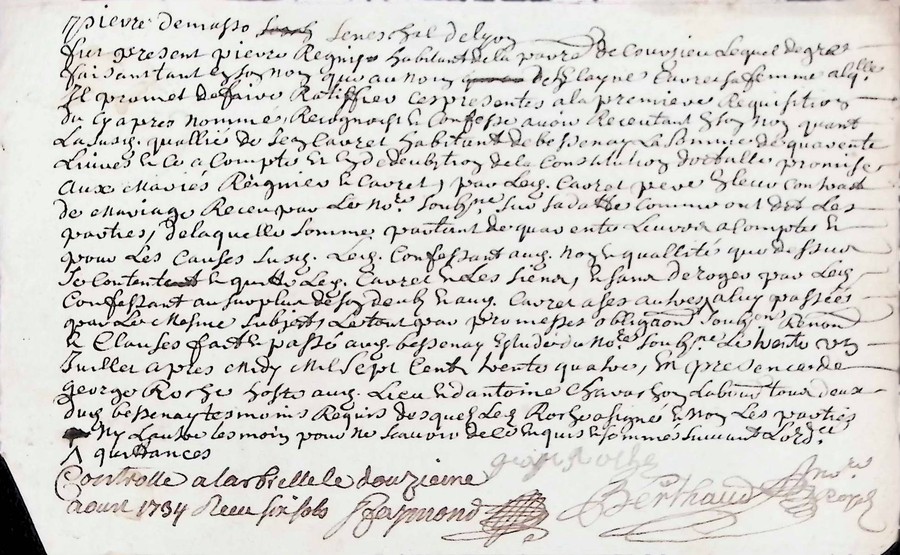 pierre demasso Seneschal de Lyon
fut present pierre Regnier habitant de la parre de Courzieu Lequel de gre
faisant tant en son nom que au nom de Cavret sa femme a laqlle
Il promet de faire Ratiffier ces presentes a la premiere Requisition
du cy apres nomme, Recognoist & Confesse avoir Receu tant en son nom quant
La susd. quallité de Cavret habitant de bessenay La somme de quarante
Livres & Ce a Compte Et en deduction de la Constitution dotalle promise
aux Mariés Reignier & Cavret, par Led. Cavret pere En leur Contract
de Mariage Receu par Le Nore. soubne. sur sa datte comme ont dit Les
parties, de laquelle somme partant de quarante Livres a Compte &
pour Les Causes susd. Led. Confessant aud. Nom & quallités que dessus
se Contente & quitte Led. Cavret & Les siens, & sans deroger par Led.
Confessant au surplus de son deub & aud. Cavret a ses autres a luy passées
par Le Mesme subject, Le tout par promesses obligaons soubmon Renon
& Clauses fait & passé aud. bessenay Estude du Nore. soubne. Le trente un
Juillet apres Midy Mil sept Cent trente quatre, En presence de
george Roche hoste aud. Lieu & d'antoine Chavasson Laboureur tous deux
dud. bessenay tesmoins Requis desquels Led. Roche a signé & Non Les parties
Ny Lautre tesmoin pour ne scavoir de ce Enquis & sommés suivant L'ord.
quittances
george Roche
Controllé a larbresle le douzieme
aoust 1734 Receu six sols Fraymond
Berthaud Nore Royal